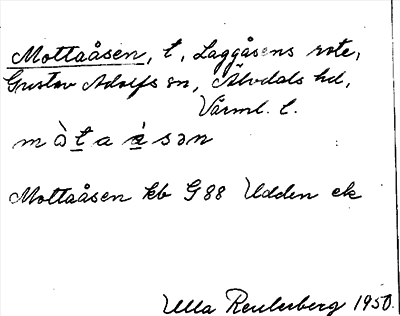 Mottaåsen, t, Laggåsens rote,
Gustav Adolfs sn, Älvdals hd,
Värml. l.
mò̀taa̤̍sən
Mottaåsen kb G88 Udden ek
Ulla 1950.